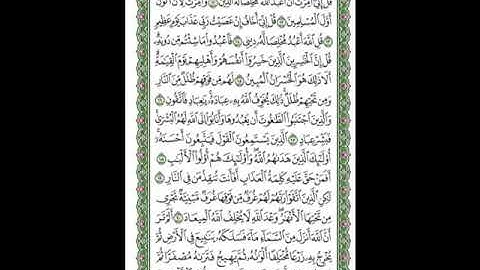 قُلْ إِنِّىٓ أُمِرْتُ أَنْ أَعْبُدَ ٱللَّهَ مُخْلِصًا لَّهُ ٱلدِّينَ ١١ وَأُمِرْتُ لِأَنْ أَكُونَ
أَوَّلَ ٱلْمُسْلِمِينَ ١٢ قُلْ إِنِّىٓ أَخَافُ إِنْ عَصَيْتُ رَبِّى عَذَابَ يَوْمٍ عَظِيمٍ
١٣ قُلِ ٱللَّهَ أَعْبُدُ مُخْلِصًا لَّهُۥ دِينِى ١٤ فَٱعْبُدُوا۟ مَا شِئْتُم مِّن دُونِهِۦ
قُلْ إِنَّ ٱلْخَٰسِرِينَ ٱلَّذِينَ خَسِرُوٓا۟ أَنفُسَهُمْ وَأَهْلِيهِمْ يَوْمَ ٱلْقِيَٰمَةِ
أَلَا ذَٰلِكَ هُوَ ٱلْخُسْرَانُ ٱلْمُبِينُ ١٥ لَهُم مِّن فَوْقِهِمْ ظُلَلٌ مِّنَ ٱلنَّارِ
وَمِن تَحْتِهِمْ ظُلَلٌ ذَٰلِكَ يُخَوِّفُ ٱللَّهُ بِهِۦ عِبَادَهُۥ يَٰعِبَادِ فَٱتَّقُونِ ١٦
وَٱلَّذِينَ ٱجْتَنَبُوا۟ ٱلطَّٰغُوتَ أَن يَعْبُدُوهَا وَأَنَابُوٓا۟ إِلَى ٱللَّهِ لَهُمُ ٱلْبُشْرَىٰ
فَبَشِّرْ عِبَادِ ١٧ ٱلَّذِينَ يَسْتَمِعُونَ ٱلْقَوْلَ فَيَتَّبِعُونَ أَحْسَنَهُۥٓ
أُو۟لَٰٓئِكَ ٱلَّذِينَ هَدَىٰهُمُ ٱللَّهُ وَأُو۟لَٰٓئِكَ هُمْ أُو۟لُوا۟ ٱلْأَلْبَٰبِ ١٨
أَفَمَنْ حَقَّ عَلَيْهِ كَلِمَةُ ٱلْعَذَابِ أَفَأَنتَ تُنقِذُ مَن فِى ٱلنَّارِ ١٩
لَٰكِنِ ٱلَّذِينَ ٱتَّقَوْا۟ رَبَّهُمْ لَهُمْ غُرَفٌ مِّن فَوْقِهَا غُرَفٌ مَّبْنِيَّةٌ تَجْرِى
مِن تَحْتِهَا ٱلْأَنْهَٰرُ وَعْدَ ٱللَّهِ لَا يُخْلِفُ ٱللَّهُ ٱلْمِيعَادَ ٢٠ أَلَمْ تَرَ
أَنَّ ٱللَّهَ أَنزَلَ مِنَ ٱلسَّمَآءِ مَآءً فَسَلَكَهُۥ يَنَٰبِيعَ فِى ٱلْأَرْضِ ثُمَّ
يُخْرِجُ بِهِۦ زَرْعًا مُّخْتَلِفًا أَلْوَٰنُهُۥ ثُمَّ يَهِيجُ فَتَرَىٰهُ مُصْفَرًّا ثُمَّ